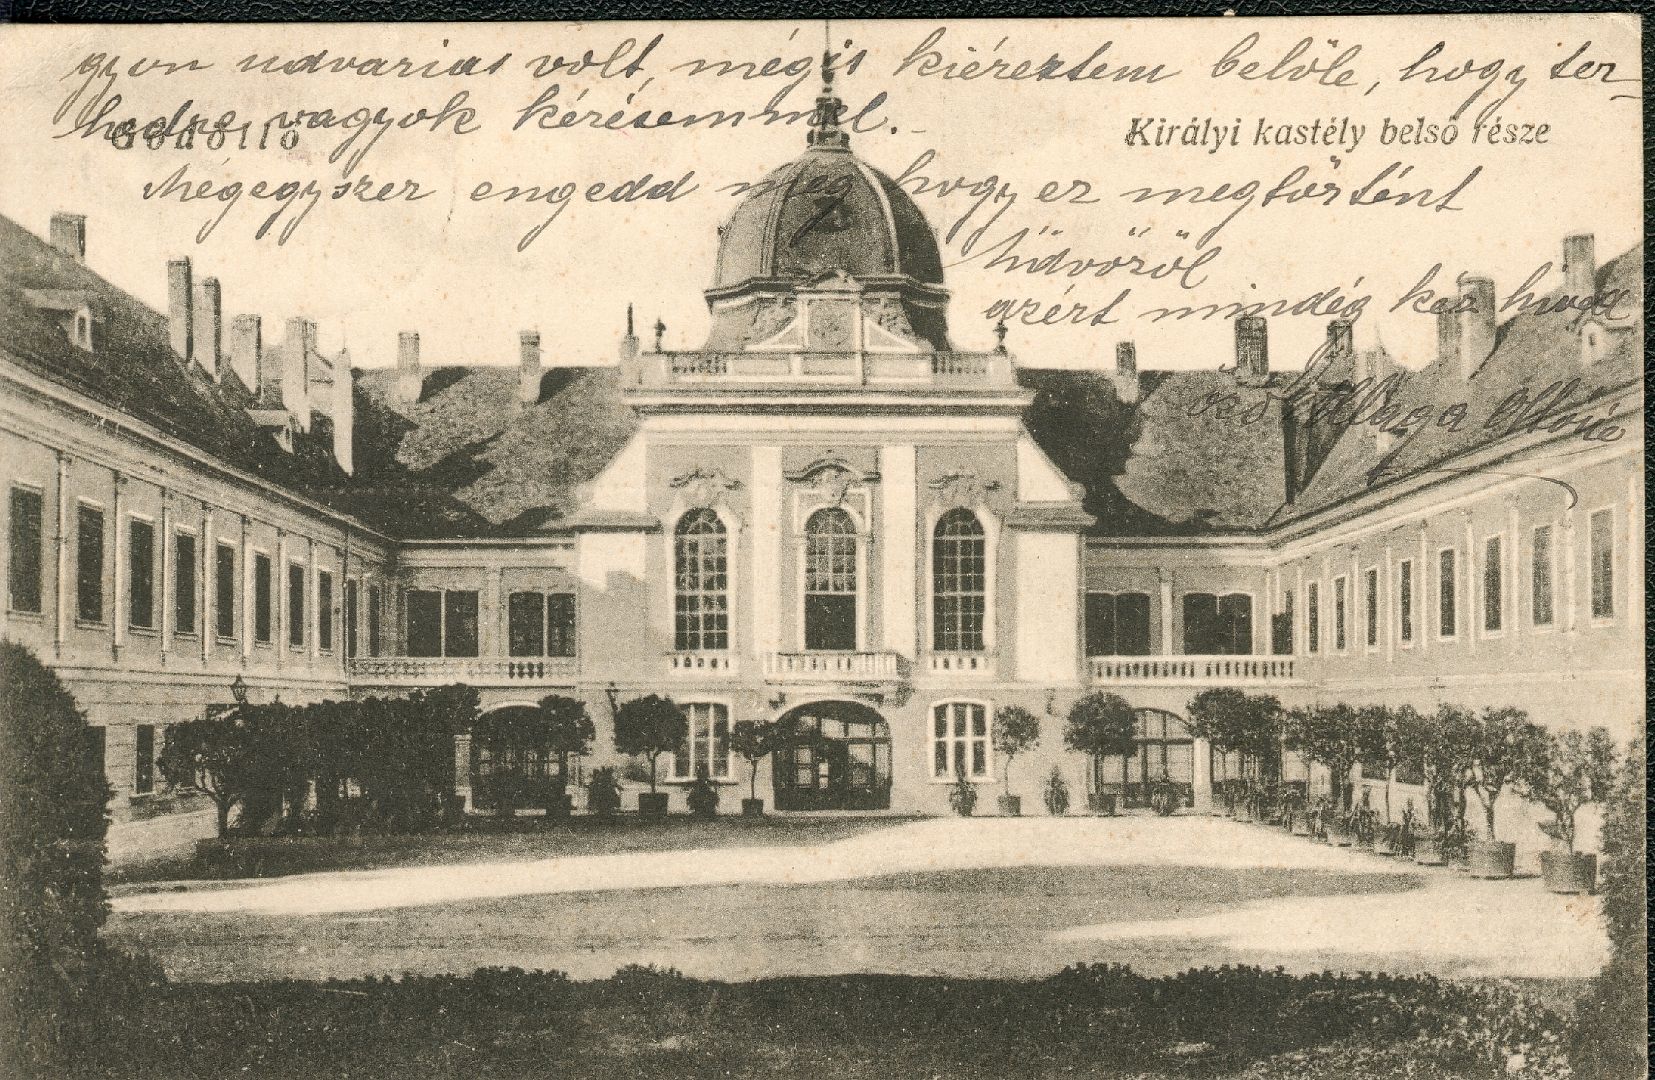 gyon udvarias volt, mégis kiéreztem belőle, hogy ter-
hedre vagyok kérésemmel.
Gödöllő
Királyi kastély belső része
Mégegyszer engedd meg hogy ez megtörtént
azért mindég kéz